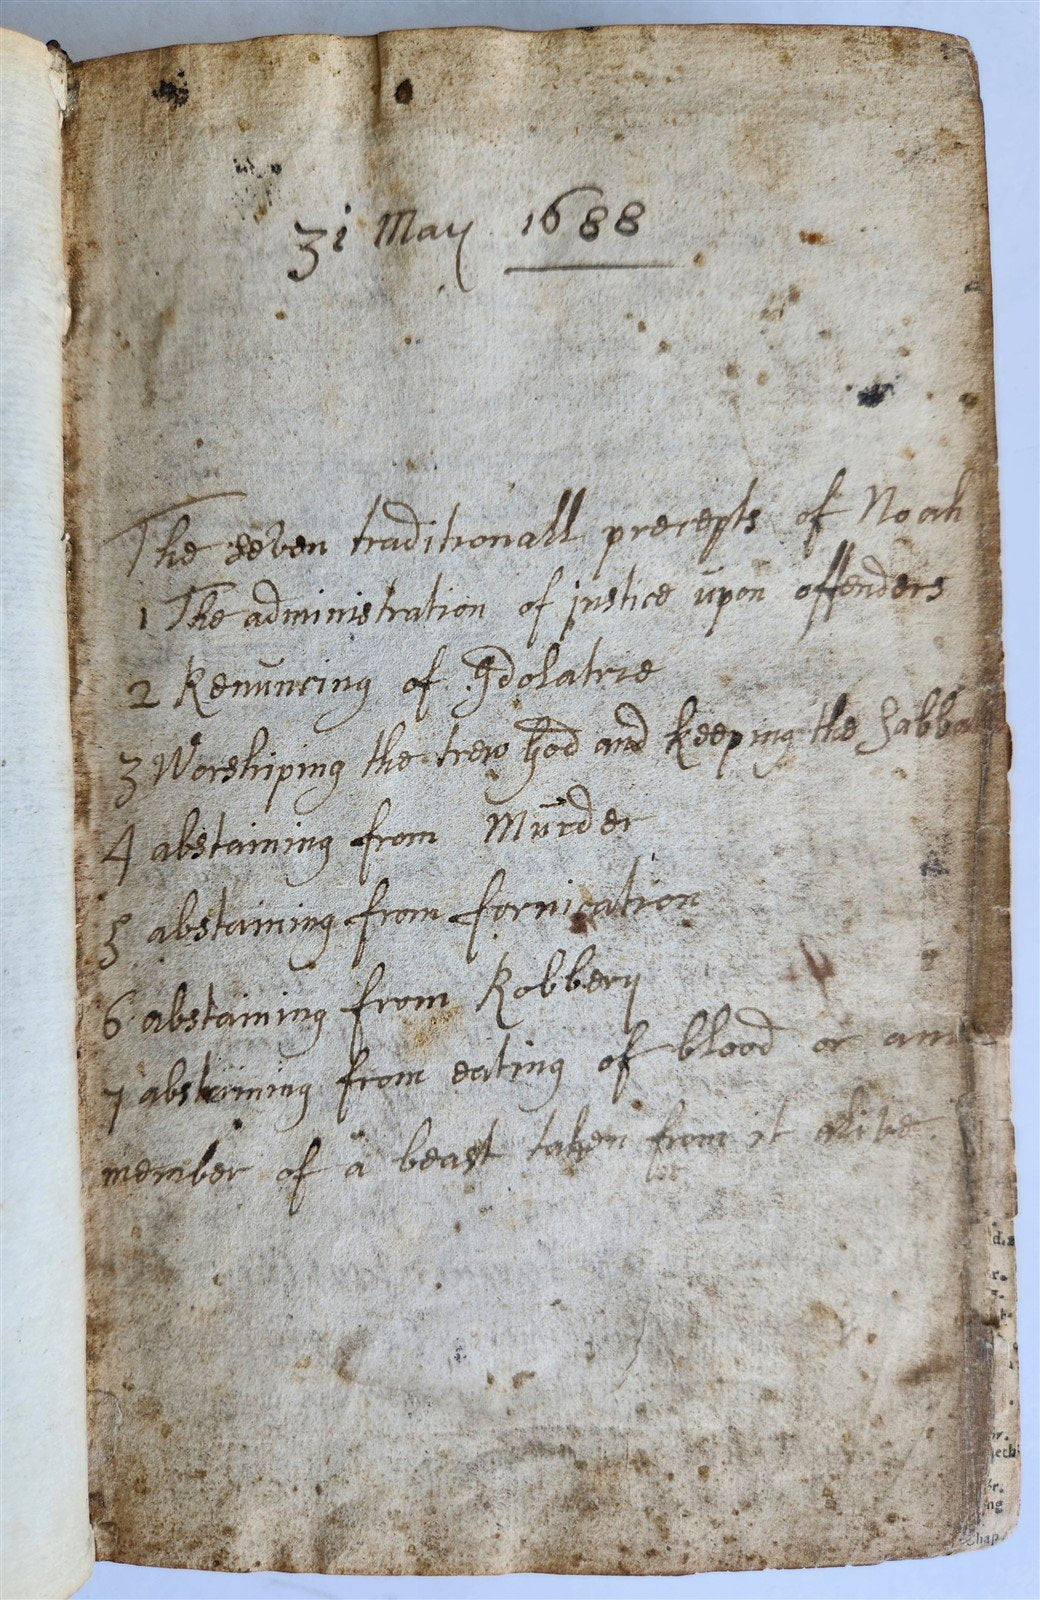 31 May 1688
The seven traditionall precepts of Noah
1 The administration of justice upon offenders
2 Renuncing of Idolatrie
3 Worshiping the trew God and keeping the Sabba
4 abstaining from Murder
5 abstaining from fornication
6 abstaining from Robbery
7 abstaining from eating of blood or ani
member of a beast taken from it alive
d.2
r.
or.
ng
Chap